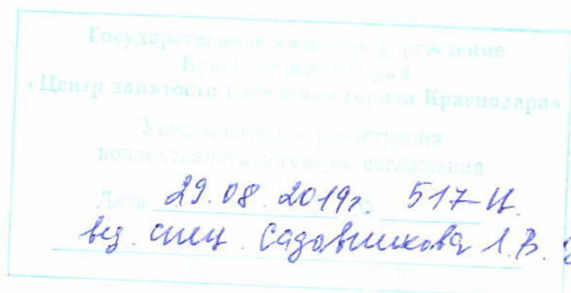 Государственное казенное учреждение
Краснодарского края
«Центр занятости населения города Краснодара»
Уведомительная регистрация
коллективного договора, соглашения
Дата 29.08.2019г. № 517-Ц.
вед. спец. Садовникова Л.В.